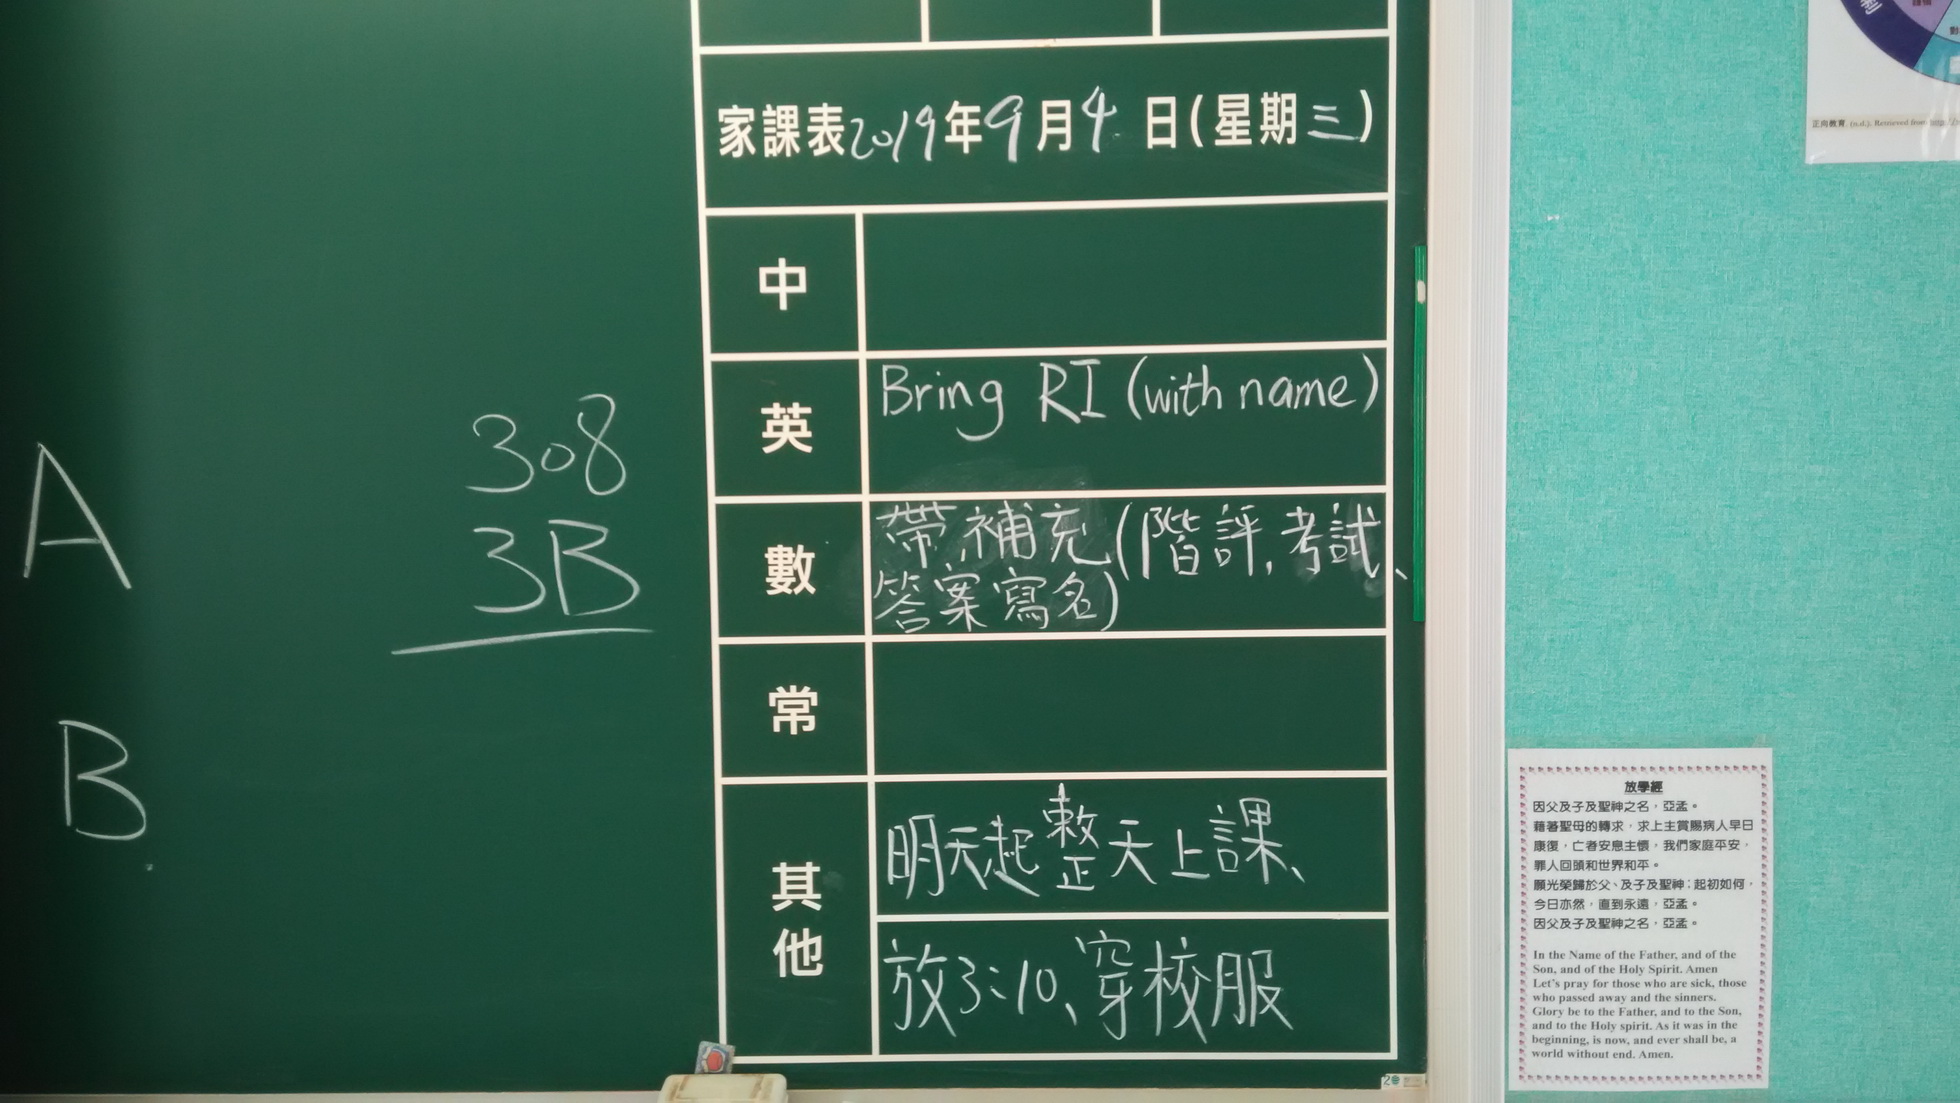 家課表2019年9月4日(星期三)
中
英
Bring RI (with name)
數
帶補充(階評,考試、
答案寫名)
常
其他
明天起整天上課、
放3:10、穿校服
A
308
3B
B
正向教育 (n.d.). Retrieved from
放學經
因父及子及聖神之名，亞孟。
藉著聖母的轉求，求上主賞賜病人早日
康復，亡者安息主懷，我們家庭平安，
罪人回頭和世界和平。
願光榮歸於父、及子及聖神；起初如何，
今日亦然，直到永遠，亞孟。
因父及子及聖神之名，亞孟。
In the Name of the Father, and of the
Son, and of the Holy Spirit. Amen
Let's pray for those who are sick, those
who passed away and the sinners.
Glory be to the Father, and to the Son,
and to the Holy spirit. As it was in the
beginning, is now, and ever shall be, a
world without end. Amen.